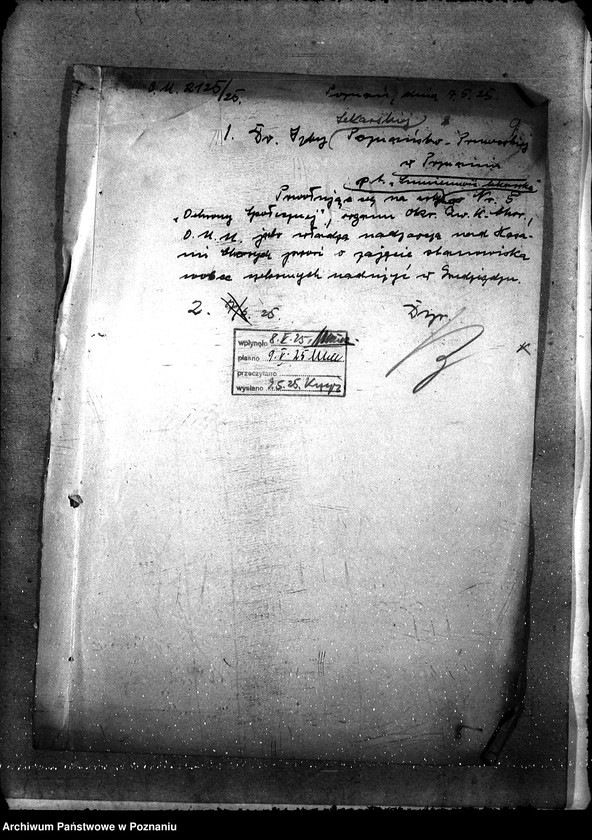 O.U. 2125/25. Poznań, dnia 7.5.25.
9
Lekarskiej
1. Do Izby Poznańsko-Pomorskiej
w Poznaniu
p.t. "Sumieniowi lekarska"
Powołując się na artykuł Nr. 5
"Ochrony Społecznej", organu Okr. Zw. K. Chor.,
O.U.U. jako władza nadzorcza nad Kasa-
mi Chorych prosi o zajęcie stanowiska
wobec nadużyć w Grudziądzu.
2. 25. Dyr.
wpłynęło 8.V.25.
pisano 9.V.25
przeczytano
wysłano 9.5.25.
Archiwum Państwowe w Poznaniu